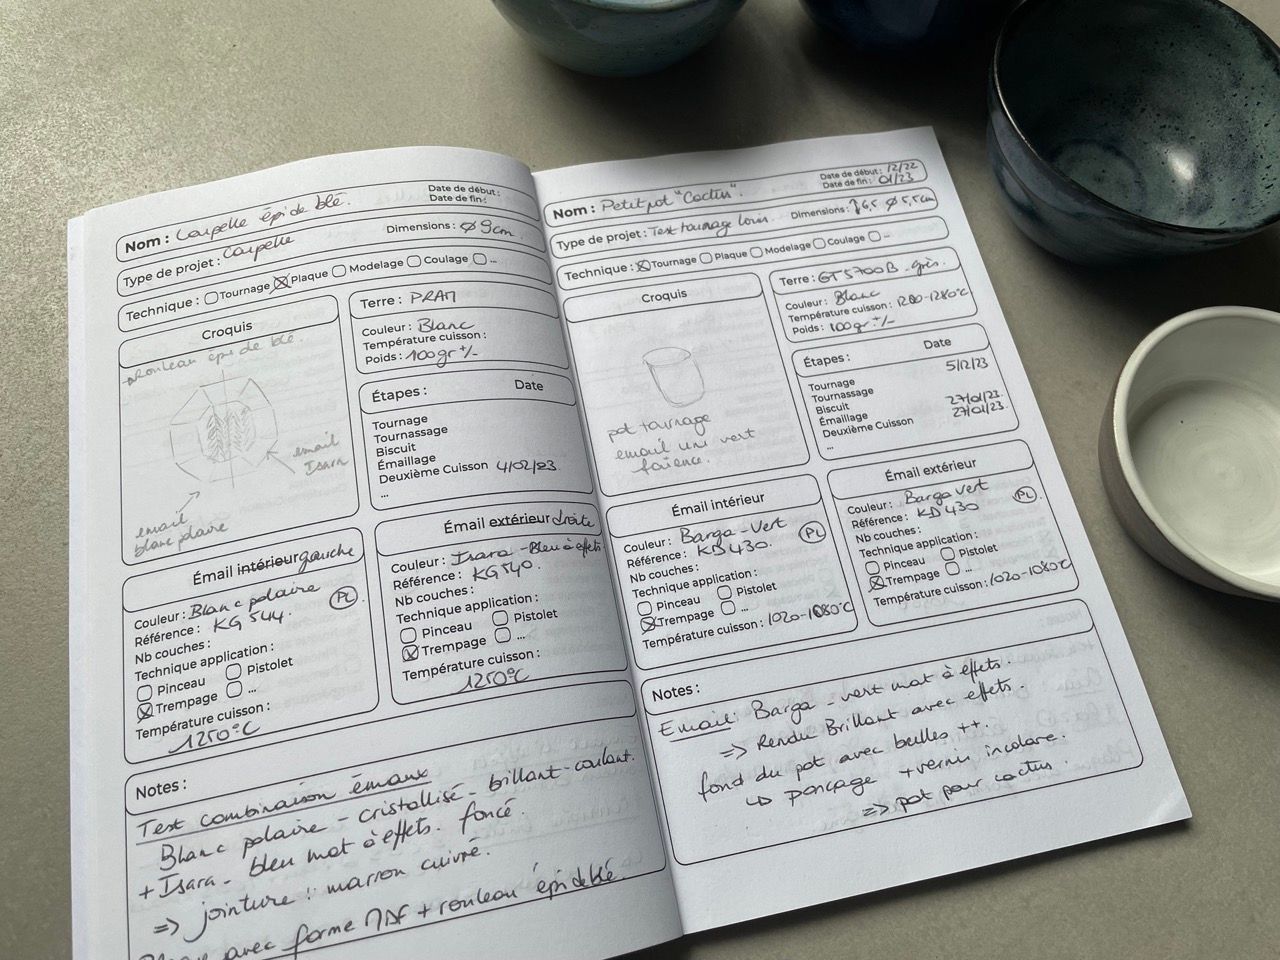 Nom : Coupelle épi de blé.
Date de début :
Date de fin :
Type de projet : Coupelle
Dimensions : ø 9cm
Technique : Tournage Plaque Modelage Coulage ...
Croquis
Rouleau épi de blé.
email
Isara
email
blanc polaire
Terre : PRAM
Couleur : Blanc
Température cuisson :
Poids : 100gr +/-
Étapes : Date
Tournage
Tournassage
Biscuit
Émaillage
Deuxième Cuisson 4/02/23
...
Émail intérieur gauche
Couleur : Blanc polaire
Référence : KG544. PL
Nb couches :
Technique application :
Pinceau Pistolet
Trempage ...
Température cuisson :
1250°C
Émail extérieur droite
Couleur : Isara - Bleu à effets.
Référence : KG540.
Nb couches :
Technique application :
Pinceau Pistolet
Trempage ...
Température cuisson :
1250°C
Notes :
Test combinaison émaux
Blanc polaire - cristallisé - brillant-coulant.
+ Isara - bleu mat à effets. foncé.
=> jointure : marron cuivré.
avec forme + rouleau épi de blé.
Nom : Petit pot "Cactus".
Date de début : 12/22
Date de fin : 01/23
Type de projet : Test tournage
Dimensions : ↕6,5 ø 5,5cm
Technique : Tournage Plaque Modelage Coulage ...
Croquis
pot tournage
email uni vert
faience.
Terre : GT5700B - grès.
Couleur : Blanc
Température cuisson : 1200-1280°C
Poids : 100gr +/-
Étapes : Date
Tournage 5/12/23
Tournassage
Biscuit 27/01/23.
Émaillage 27/01/23.
Deuxième Cuisson
...
Émail intérieur
Couleur : Barga - Vert
Référence : KD430. PL
Nb couches :
Technique application :
Pinceau Pistolet
Trempage ...
Température cuisson : 1020-1080°C
Émail extérieur
Couleur : Barga Vert
Référence : KD430 PL
Nb couches :
Technique application :
Pinceau Pistolet
Trempage ...
Température cuisson : 1020-1080°C
Notes :
Email : Barga - vert mat à effets.
=> Rendu Brillant avec effets
fond du pot avec bulles ++.
↳ ponçage + vernis incolore.
=> pot pour cactus.